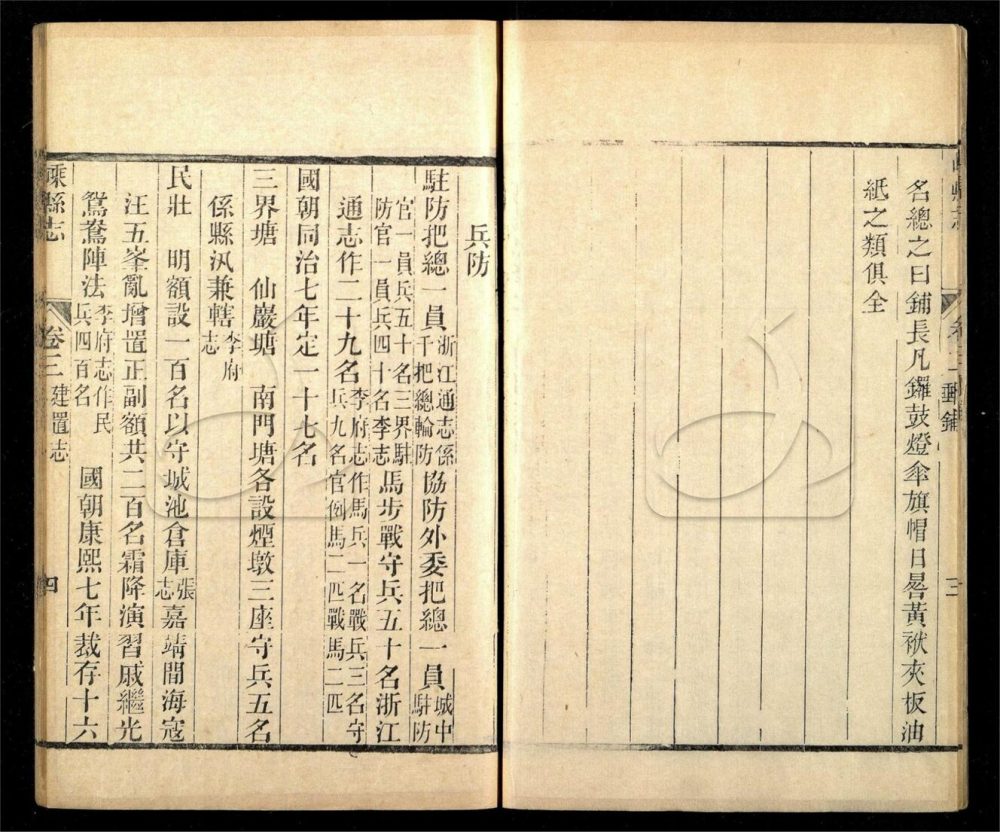 名總之曰鋪長凡鑼鼓燈傘旗帽日晷黃袱夾板油
紙之類俱全
兵防
駐防把總一員浙江通志係千把總輪防協防外委把總一員城中駐防
官一員兵五十名三界駐防官一員兵四十名李志馬步戰守兵五十名浙江
通志作二十九名李府志作馬兵一名戰兵三名守兵九名官例馬二匹戰馬二匹
國朝同治七年定一十七名
三界塘　仙巖塘　南門塘各設煙墩三座守兵五名
係縣汛兼轄李府志
民壯　明額設一百名以守城池倉庫張志嘉靖間海寇
汪五峯亂增置正副額共二百名霜降演習戚繼光
鴛鴦陣法李府志作民兵四百名　國朝康熙七年裁存十六
嵊縣志　卷三　建置志　四